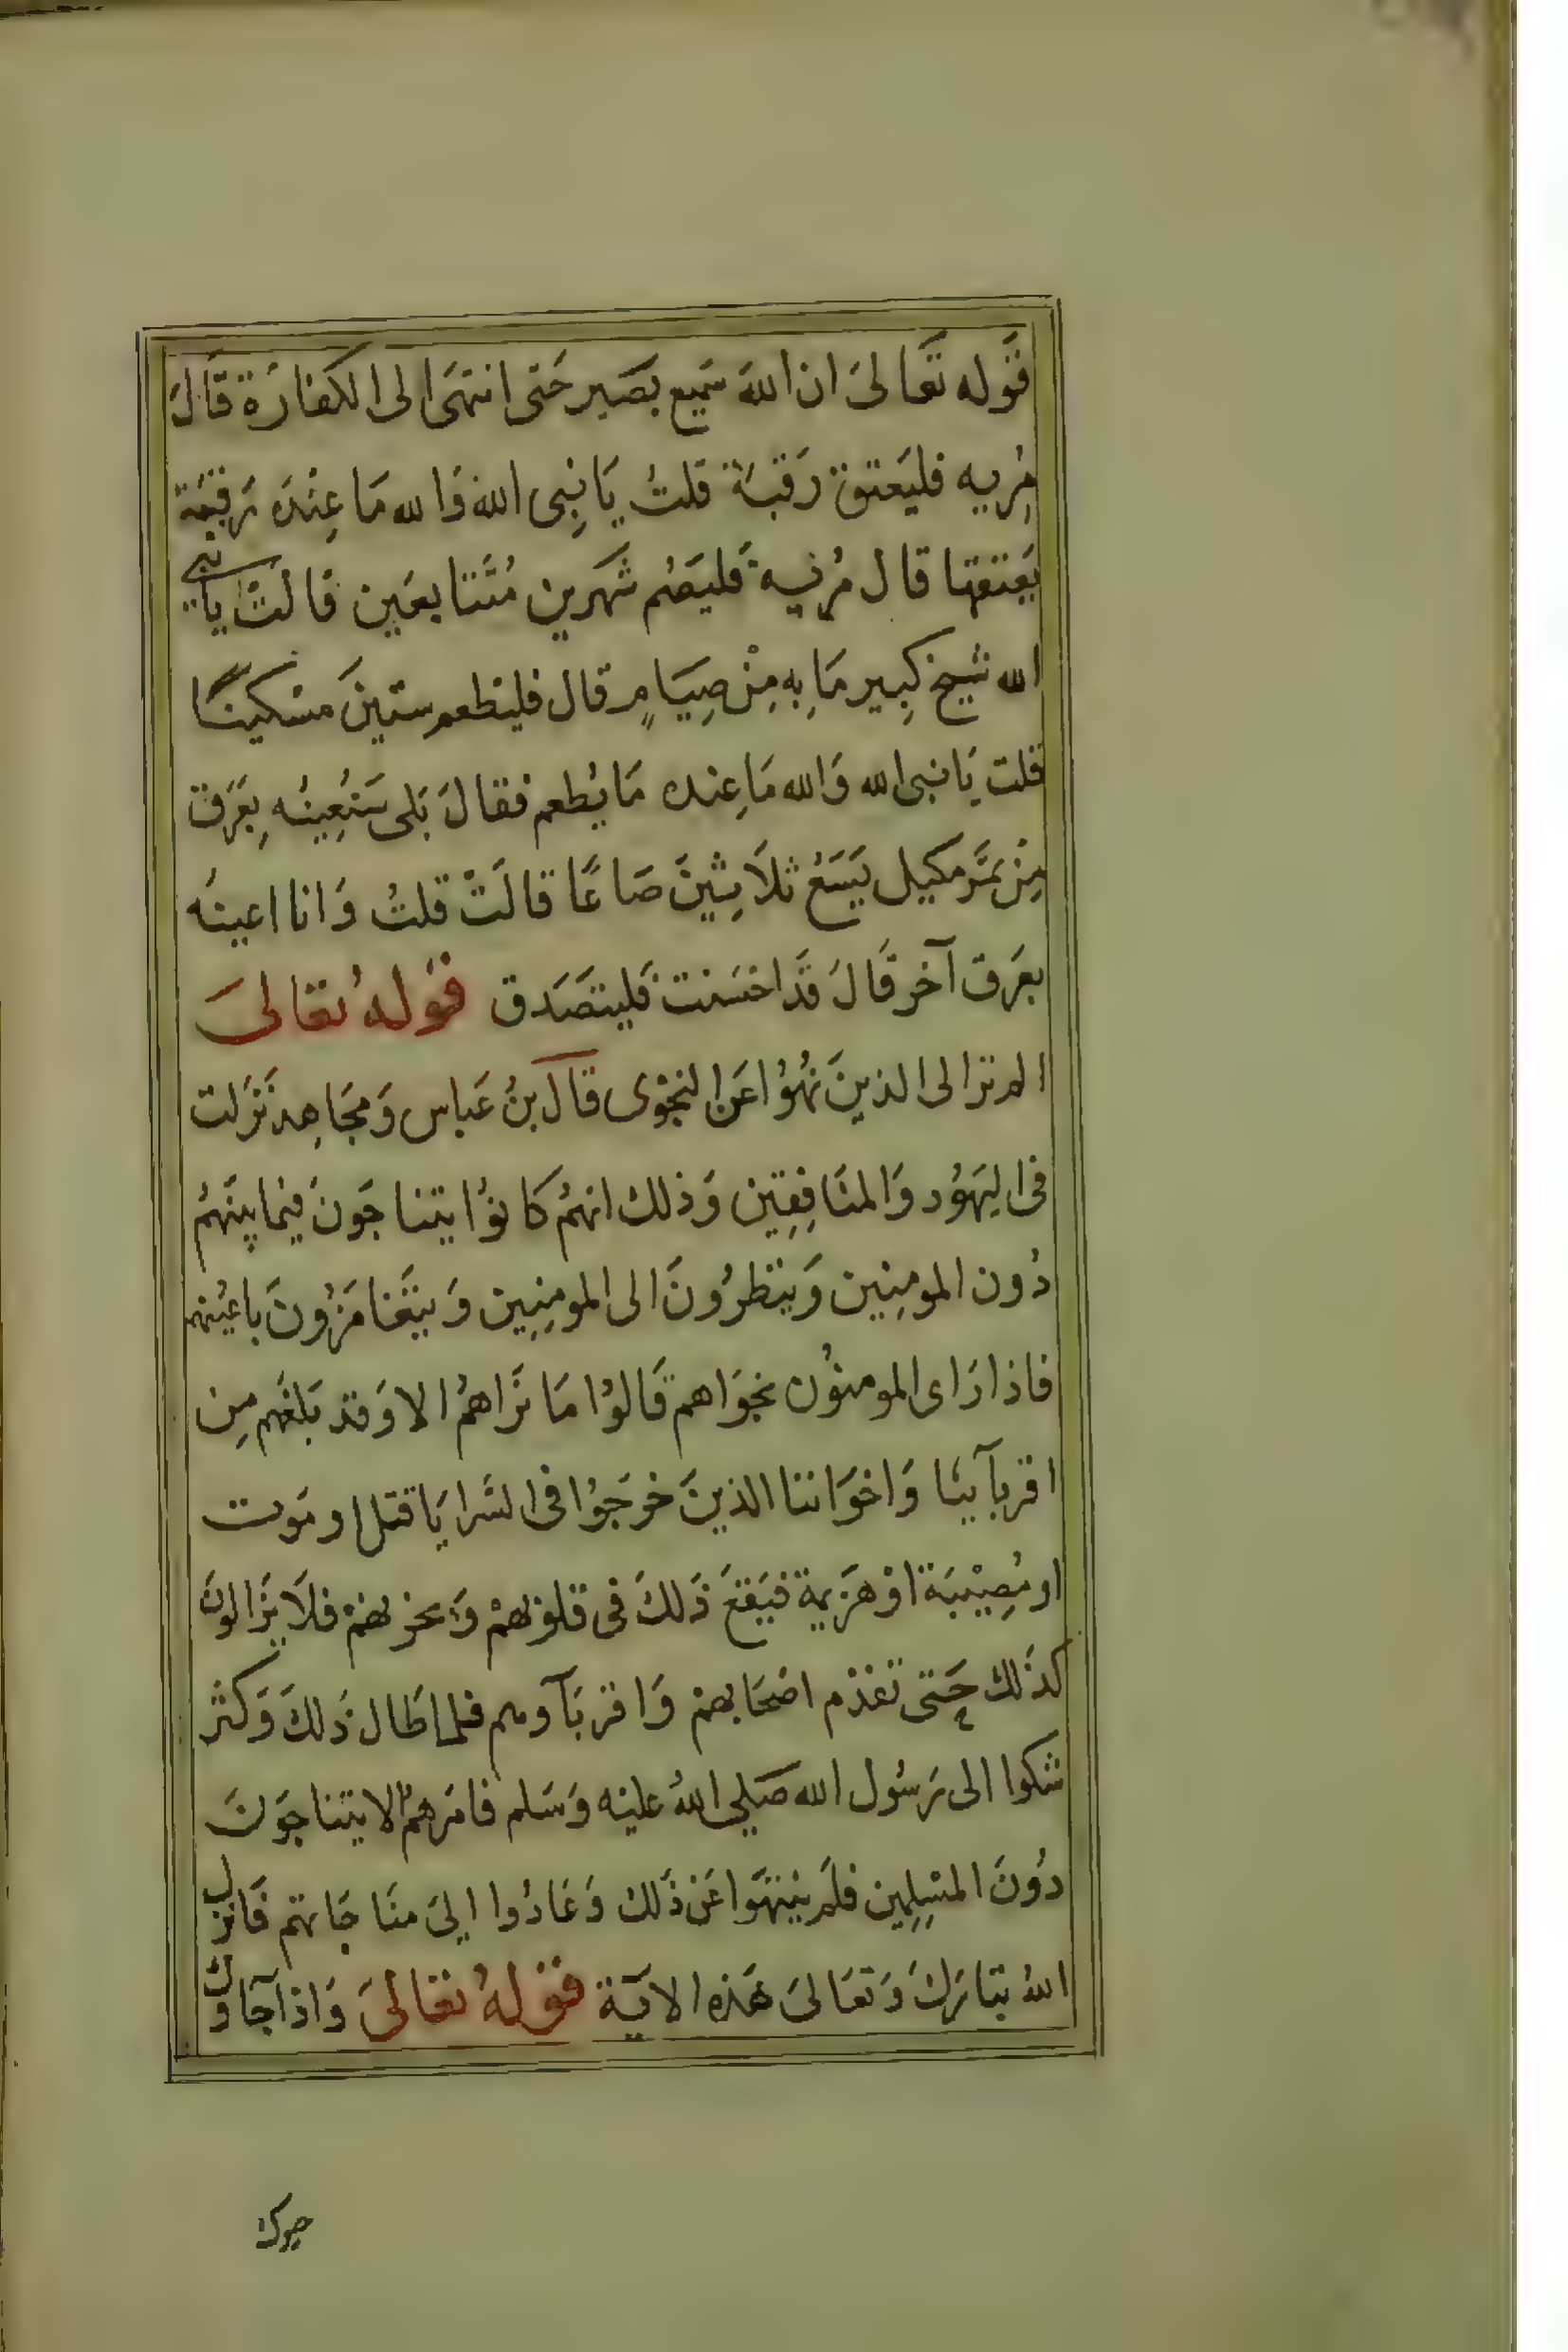 قَوله تَعَالىَ ان اللهَ سَميع بصَير حَتى انتهَى الى الكفارَة قَالَ
مُريه فليَعتق رَقبَة قلتُ يَا نِبى الله وَالله مَا عِنْدَه رَقبَة
يَعتقها قال مُريه فَليَصُم شهرين مُتَتابعَين قالَتْ يا نبى
الله شيخ كِبير مَا بِه مِنْ صِيَامٍ قال فليطعم ستينَ مسْكينًا
قلت يَا نبى الله وَالله مَا عِنده مَا يُطعم فقالَ بَلى سَنُعِينُه بِعَرَق
مِنْ تمَر مكيل يَسَعُ ثلاَثِينَ صَاعًا قالَتْ قلتُ وَانا اعينَه
بعَرَق آخر قَالَ قَد احسَنت فليتصَدق قوله تعالىَ
الم تر الى الذينَ نُهُوا عَن النجوْى قآل بنُ عَباس وَمجَاهِد نَزَلت
فى اليَهوُد وَالمنَافِقِين وَذلك انهمُ كانوُا يتناجَونَ فيما بينَهمُ
دُون المومِنِين وَينظرُونَ الى المومِنِين وَيتَغَامَزُونَ باعيُنهم
فاذا رَاى المومنوُن نجوَاهم قَالوُا مَا نَرَاهمُ الا وَقد بَلغَهم مِن
اقربآينا وَاخوَاننا الذينَ خرَجوُا فى السَرايَا قتل او مَوت
او مُصِيْبَة اوْ هَزيمة فيَقعَ ذَلكَ فى قلوبهمْ وَيحزنهمْ فلاَ يزَالونَ
كذَلك حَتى تقدم اصْحَابهمْ وَاقربَآوهم فلما طَال ذَلكَ وَكثر
شكوا الى رَسُول الله صَلي اللهُ عليْه وَسَلم فامَرهمُ الا يتناجَونَ
دُونَ المسْلِمِين فلَم ينتهَوا عَن ذَلك وَعَادُوا الىَ منَاجَاتهم فَانزل
اللهُ تبَارَكَ وَتعَالىَ هَذه الايَة قوْلهُ تعَالىَ وَاذا جَآوك
حيوك